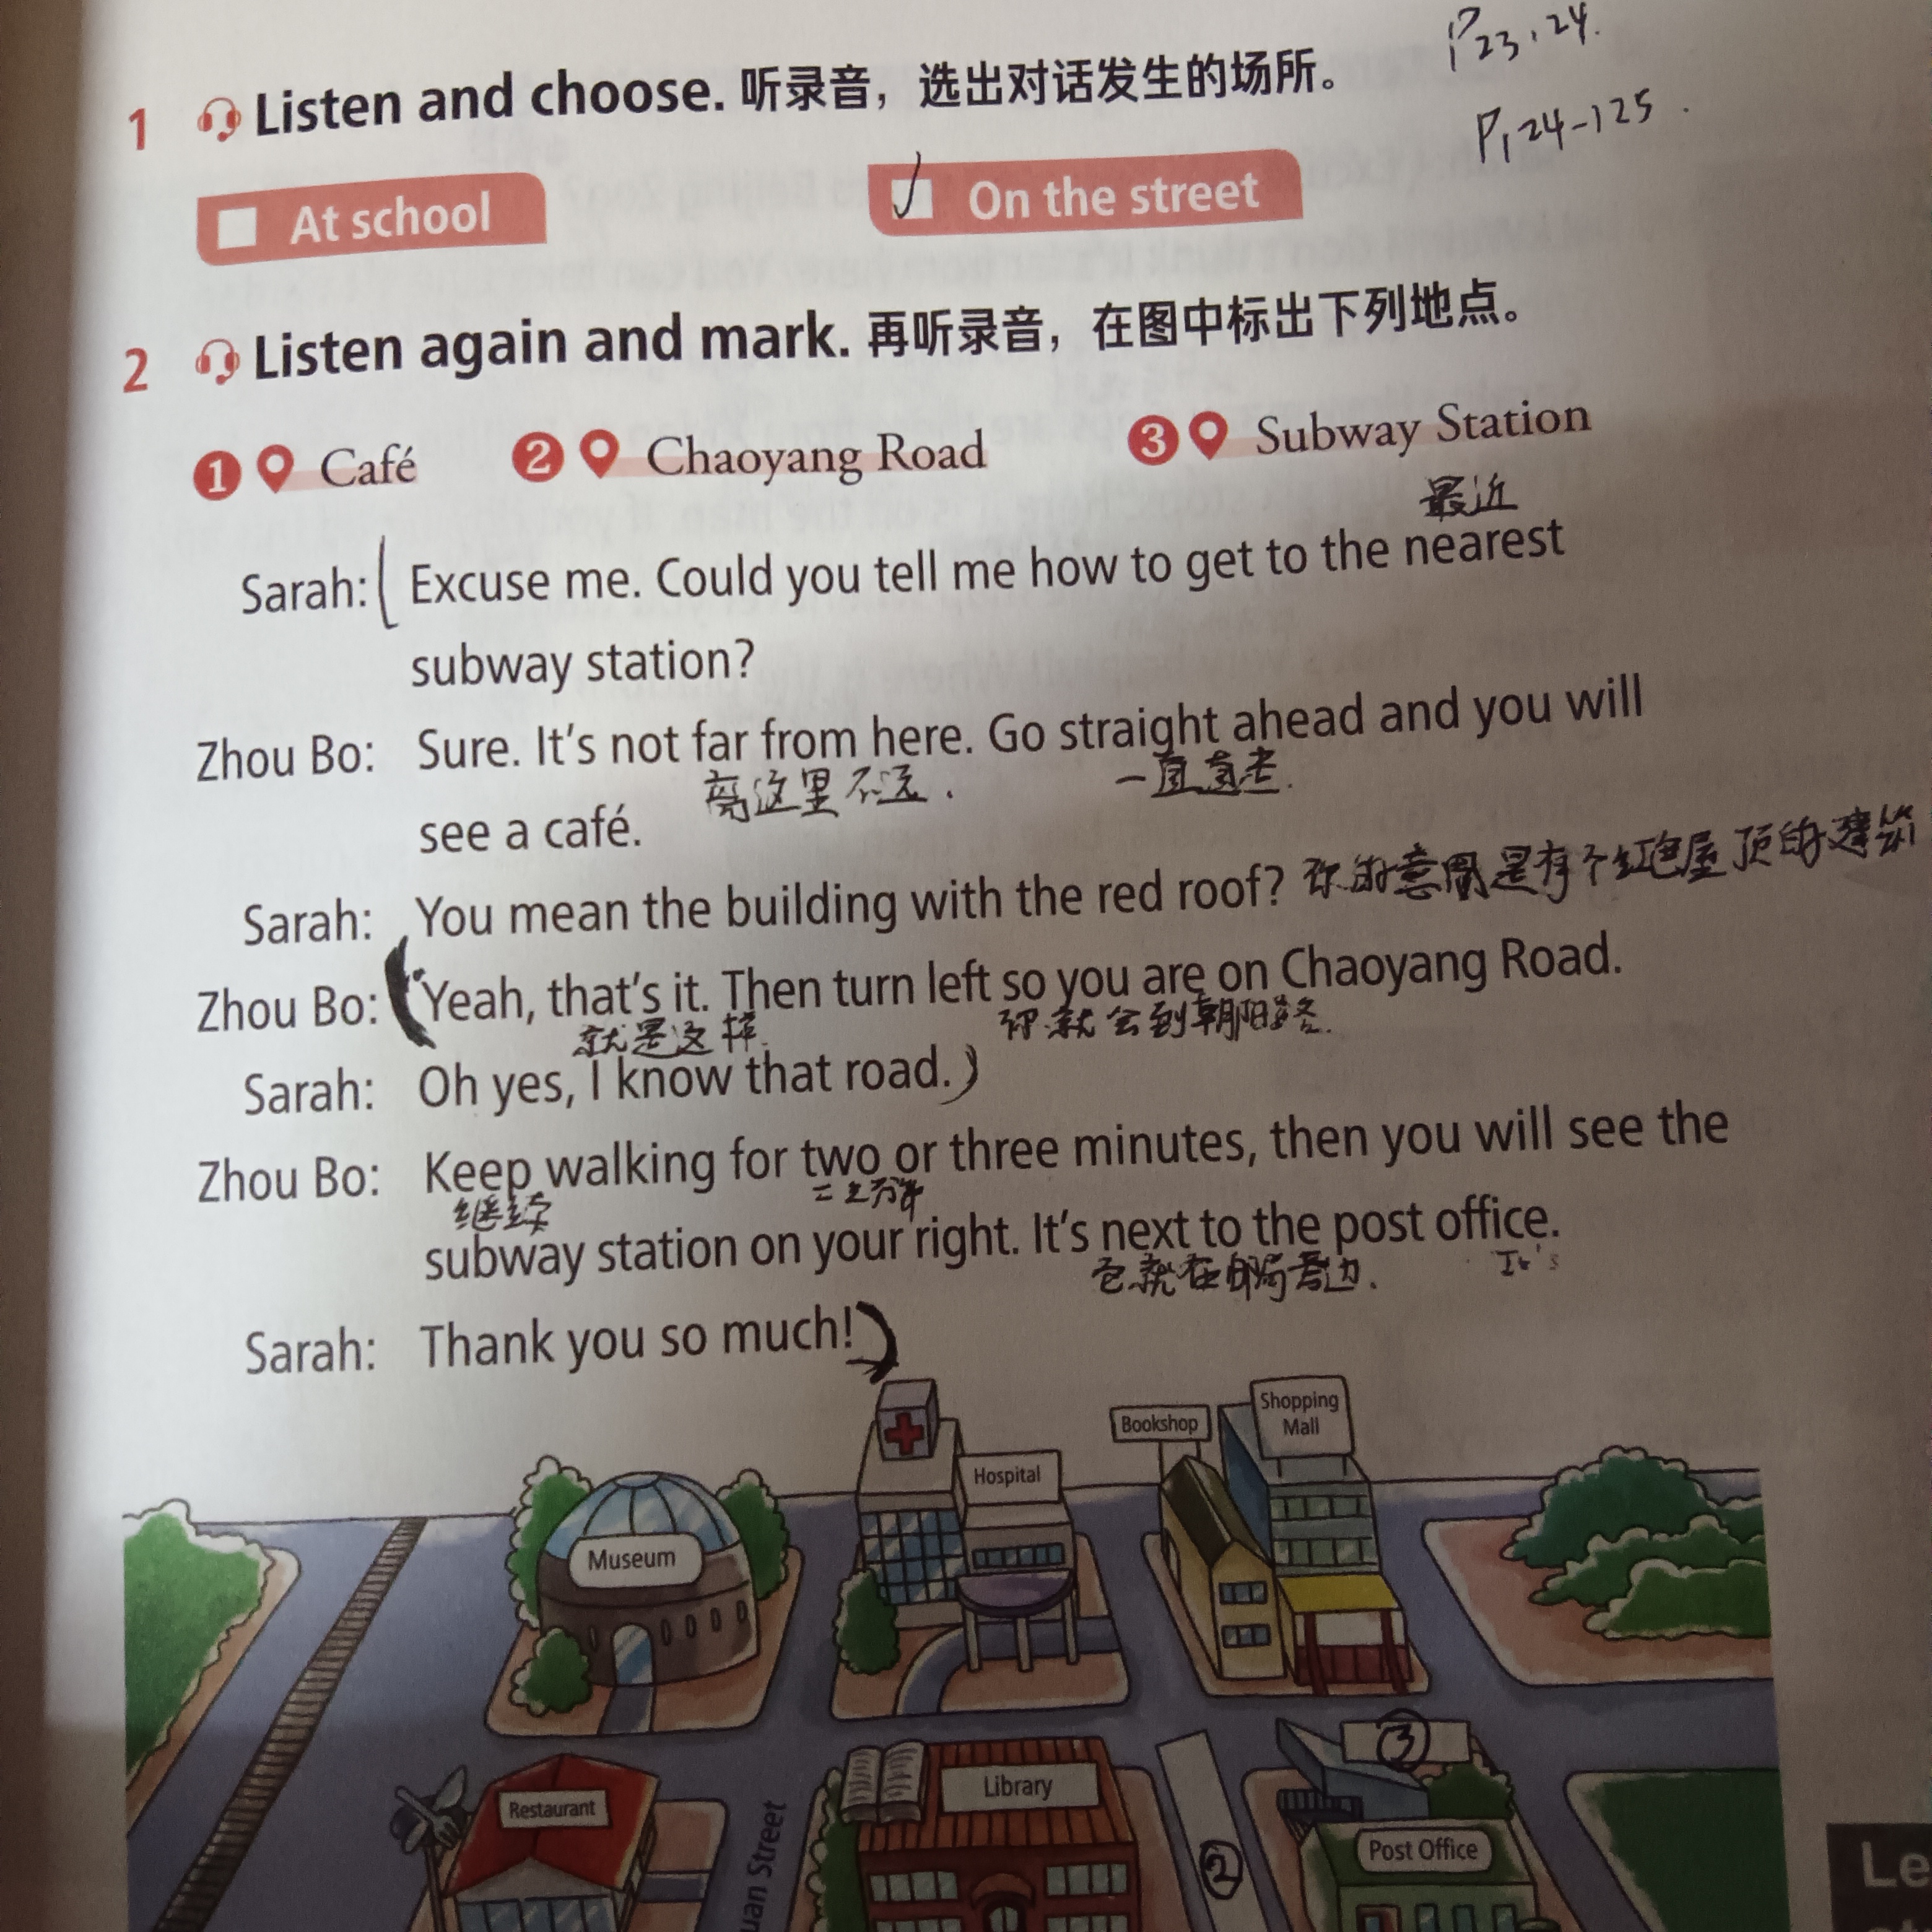 P23,24.
P124-125.
1 Listen and choose. 听录音，选出对话发生的场所。
At school
✓ On the street
2 Listen again and mark. 再听录音，在图中标出下列地点。
1 Café 2 Chaoyang Road 3 Subway Station
最近
Sarah: ( Excuse me. Could you tell me how to get to the nearest
subway station?
Zhou Bo: Sure. It's not far from here. Go straight ahead and you will
离这里不远. 一直直走.
see a café.
Sarah: You mean the building with the red roof? 你的意思是有个红色屋顶的建筑
Zhou Bo: (Yeah, that's it. Then turn left so you are on Chaoyang Road.
就是这样. 你就会到朝阳路.
Sarah: Oh yes, I know that road.)
Zhou Bo: Keep walking for two or three minutes, then you will see the
继续
subway station on your right. It's next to the post office.
它就在邮局旁边. It's
Sarah: Thank you so much!)
Shopping
Mall
Bookshop
Hospital
Museum
③
Library
Restaurant
Post Office
uan Street
②
Le